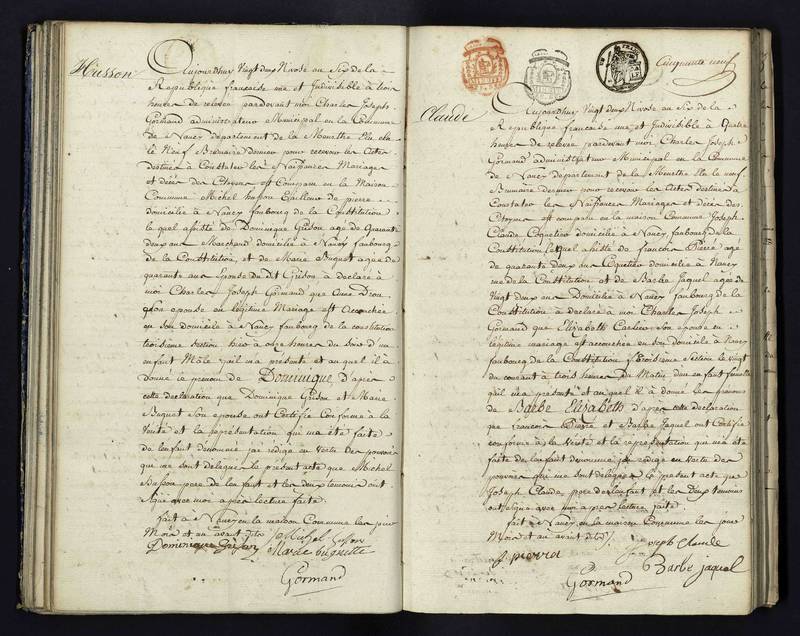 Husson
Aujourdhuy Vingt deux Nivose an Six de la
Republique francaise une et Indivisible à trois
heures de relevée pardevant moi Charles Joseph
Gormand administrateur Municipal en la Commune
de Nancy departement de la Meurthe Elu
le Neuf Brumaire dernier pour recevoir les Actes
destinés à Constater les Naissances Mariages
et décés des Citoyens est Comparu en la Maison
Commune Michel husson tailleur de pierre
domicilié à Nancy faubourg de la Constitution
le quel assisté de Dominique Grison agé de Quarante
deux ans Marchand domicilié à Nancy faubourg
de la Constitution, et de Marie Buquet agée de
quarante ans Epouse du dt Grison à declaré à
moi Charles Joseph Gormand que Anne Drou
Son epouse en légitime Mariage est Accouchée
en son domicile à Nancy faubourg de la constitution
troisieme Section hier à onze heures du Soir d'un
enfant Mâle qu'il m'a présenté et au quel il à
donné le prenom de Dominique d'après
cette declaration que Dominique Grison et Marie
Buquet Son epouse ont Certifié Conforme à la
Verité et la représentation qui m'a été faite
de l'enfant denommé j'ai rédigé en Vertu des pouvoirs
qui me sont delegués le présent acte que Michel
husson pere de l'enfant et les deux temoins ont
Signé avec moi après lecture faite.
fait à Nancy en la maison Commune les jour
Mois et an avant dits Michel husson
Dominique Grison Marie buquette
Gormand
Cinquante neuf
Claude
Aujourdhuy Vingt deux Nivose an Six de la
Republique francaise une et Indivisible à Quatre
heures de relevée pardevant moi Charles Joseph
Gormand administrateur Municipal en la Commune
de Nancy departement de la Meurthe Elu le neuf
Brumaire dernier pour recevoir les Actes destinés à
Constater les Naissances Mariages et décés des
Citoyens est comparu en la maison Commune Joseph
Claude Coquetier domicilié à Nancy faubourg de la
Constitution lequel assisté de francois Pierré agé
de quarante deux ans Coquetier domicilié à Nancy
rue de la Constitution et de Barbe Jaquel agée de
Vingt deux ans Domiciliée à Nancy faubourg de la
Constitution à declaré à moi Charles Joseph
Gormand que Elizabeth son epouse en
légitime mariage est accouchée en son domicile à Nancy
faubourg de la Constitution troisieme Section le vingt
du courant à trois heures du Matin d'un enfant femelle
qu'il m'a présenté et au quel il à donné les prenoms
de Barbe Elizabeth d'après cette declaration
que francois Pierré et Barbe Jaquel ont Certifié
conforme à la Verité et la représentation qui m'a été
faite de l'enfant denommé j'ai rédigé en vertu des
pouvoirs qui me sont delegués le présent acte que
Joseph Claude pere de l'enfant et les Deux temoins
ont signé avec moi après lecture faite
fait à Nancy en la maison Commune les jour
Mois et an avant dits Joseph Claude
f pierron
Barbe jaquel
Gormand